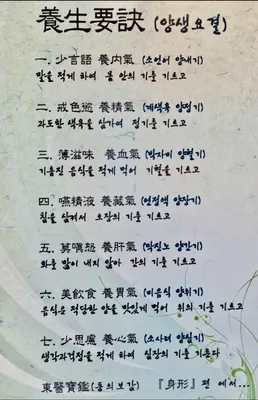 養生要訣 (양생요결)
一. 少言語 養內氣 (소언어 양내기)
말을 적게 하여 몸 안의 기운 기르고
二. 戒色慾 養精氣 (계색욕 양정기)
과도한 색욕을 삼가여 정기운 기르고
三. 薄滋味 養血氣 (박자미 양혈기)
기름진 음식을 적게 먹어 기혈을 기르고
四. 嚥精液 養藏氣 (연정액 양장기)
침을 삼켜서 오장의 기운 기르고
五. 莫嗔怒 養肝氣 (막진노 양간기)
화를 많이 내지 않아 간의 기운 기르고
六. 美飮食 養胃氣 (미음식 양위기)
음식은 적당한 양을 맛있게 먹어 위의 기운 기르고
七. 少思慮 養心氣 (소사려 양심기)
생각과걱정을 적게 하여 심장의 기운 기른다
東醫寶鑑(동의보감) 『身形』편 에서...